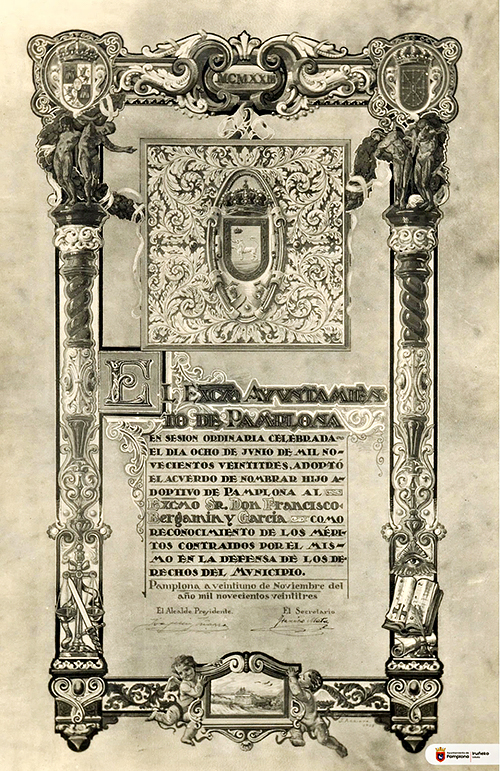 MCMXXIII
EL EXCMO AYUNTAMIEN-
TO DE PAMPLONA
EN SESION ORDINARIA CELEBRADA
EL DIA OCHO DE JVNIO DE MIL NO-
VECIENTOS VEINTITRES, ADOPTÓ
EL ACVERDO DE NOMBRAR HIJO A-
DOPTIVO DE PAMPLONA AL
EXCMO SR. DON FRANCISCO
BERGAMIN Y GARCÍA COMO
RECONOCIMIENTO DE LOS MÉRI-
TOS CONTRAIDOS POR EL MIS-
MO EN LA DEFENSA DE LOS DE-
RECHOS DEL MVNICIPIO.
Pamplona a veintiuno de Noviembre del
año mil novecientos veintitres
El Alcalde Presidente. El Secretario
Ayuntamiento de Pamplona Iruñeko Udala